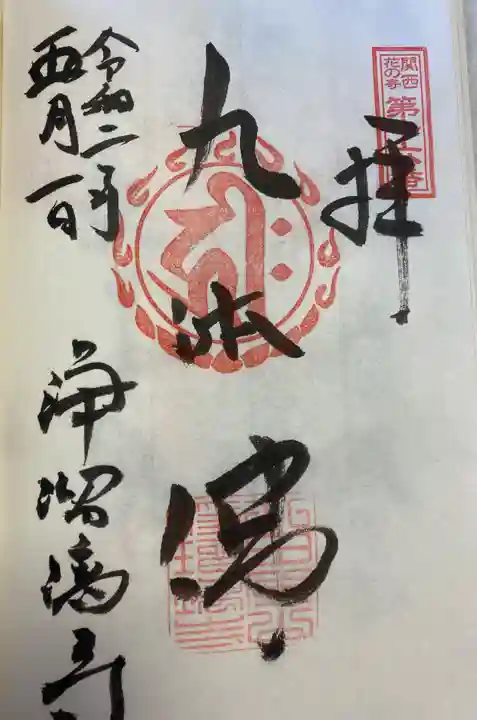 関西
花の寺
第十六番
拝
九体佛
令和二年
五月一日
浄瑠璃寺